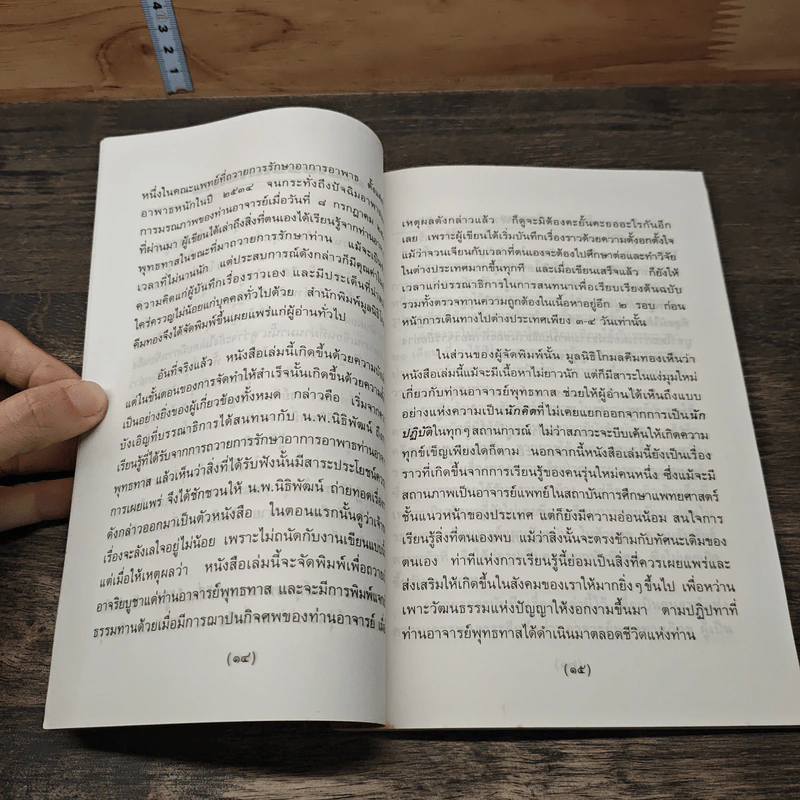 4
3
2
1
หนึ่งในคณะแพทย์ที่ถวายการรักษาอาการอาพาธ
อาพาธหนักในปี ๒๕๓๔ จนกระทั่งถึงปัจฉิมอาพาธ
การมรณภาพของท่านอาจารย์เมื่อวันที่ ๘ กรกฎาคม
ที่ผ่านมา ผู้เขียนได้เล่าถึงสิ่งที่ตนเองได้เรียนรู้จากท่านอาจารย์
พุทธทาสในขณะที่มาถวายการรักษาท่าน แม้จะเป็น
เวลาที่ไม่นานนัก แต่ประสบการณ์ดังกล่าวก็มีคุณค่า
ความคิดแก่ผู้บันทึกเรื่องราวเอง และมีประเด็นที่น่า
ใคร่ครวญไม่น้อยแก่บุคคลทั่วไปด้วย สำนักพิมพ์มูลนิธิ
คีมทองจึงได้จัดพิมพ์ขึ้นเผยแพร่แก่ผู้อ่านทั่วไป
อันที่จริงแล้ว หนังสือเล่มนี้เกิดขึ้นด้วยความ
แต่ในขั้นตอนของการจัดทำให้สำเร็จนั้นเกิดขึ้นด้วยความ
เป็นอย่างยิ่งของผู้เกี่ยวข้องทั้งหมด กล่าวคือ เริ่มจาก
บังเอิญที่บรรณาธิการได้สนทนากับ น.พ.นิธิพัฒน์ ถึง
เรียนรู้ที่ได้รับจากการถวายการรักษาอาการอาพาธท่าน
พุทธทาส แล้วเห็นว่าสิ่งที่ได้รับฟังนั้นมีสาระประโยชน์
การเผยแพร่ จึงได้ชักชวนให้ น.พ.นิธิพัฒน์ ถ่ายทอดเรื่อง
ดังกล่าวออกมาเป็นตัวหนังสือ ในตอนแรกนั้นดูว่าเจ้า
เรื่องจะลังเลใจอยู่ไม่น้อย เพราะไม่ถนัดกับงานเขียนแบบ
แต่เมื่อให้เหตุผลว่า หนังสือเล่มนี้จะจัดพิมพ์เพื่อถวาย
อาจริยบูชาแด่ท่านอาจารย์พุทธทาส และจะมีการพิมพ์แจก
ธรรมทานด้วยเมื่อมีการฌาปนกิจศพของท่านอาจารย์
(๑๔)
เหตุผลดังกล่าวแล้ว ก็ดูจะมิต้องคะยั้นคะยออะไรกันอีก
เลย เพราะผู้เขียนได้เริ่มบันทึกเรื่องราวด้วยความตั้งอกตั้งใจ
แม้ว่าจวนเจียนกับเวลาที่ตนเองจะต้องไปศึกษาต่อและทำวิจัย
ในต่างประเทศมากขึ้นทุกที และเมื่อเขียนเสร็จแล้ว ก็ยังให้
เวลาแก่บรรณาธิการในการสนทนาเพื่อเรียบเรียงต้นฉบับ
รวมทั้งตรวจทานความถูกต้องในเนื้อหาอยู่อีก ๒ รอบ ก่อน
หน้าการเดินทางไปต่างประเทศเพียง ๓-๔ วันเท่านั้น
ในส่วนของผู้จัดพิมพ์นั้น มูลนิธิโกมลคีมทองเห็นว่า
หนังสือเล่มนี้แม้จะมีเนื้อหาไม่ยาวนัก แต่ก็มีสาระในแง่มุมใหม่
เกี่ยวกับท่านอาจารย์พุทธทาส ช่วยให้ผู้อ่านได้เห็นถึงแบบ
อย่างแห่งความเป็นนักคิดที่ไม่เคยแยกออกจากการเป็นนัก
ปฏิบัติในทุกๆสถานการณ์ ไม่ว่าสภาวะจะบีบเค้นให้เกิดความ
ทุกข์เข็ญเพียงใดก็ตาม นอกจากนี้หนังสือเล่มนี้ยังเป็นเรื่อง
ราวที่เกิดขึ้นจากการเรียนรู้ของคนรุ่นใหม่คนหนึ่ง ซึ่งแม้จะมี
สถานภาพเป็นอาจารย์แพทย์ในสถาบันการศึกษาแพทยศาสตร์
ชั้นแนวหน้าของประเทศ แต่ก็ยังมีความอ่อนน้อม สนใจการ
เรียนรู้สิ่งที่ตนเองพบ แม้ว่าสิ่งนั้นจะตรงข้ามกับทัศนะเดิมของ
ตนเอง ท่าทีแห่งการเรียนรู้นี้ย่อมเป็นสิ่งที่ควรเผยแพร่และ
ส่งเสริมให้เกิดขึ้นในสังคมของเราให้มากยิ่งๆขึ้นไป เพื่อหว่าน
เพาะวัฒนธรรมแห่งปัญญาให้งอกงามขึ้นมา ตามปฏิปทาที่
ท่านอาจารย์พุทธทาสได้ดำเนินมาตลอดชีวิตแห่งท่าน
(๑๕)